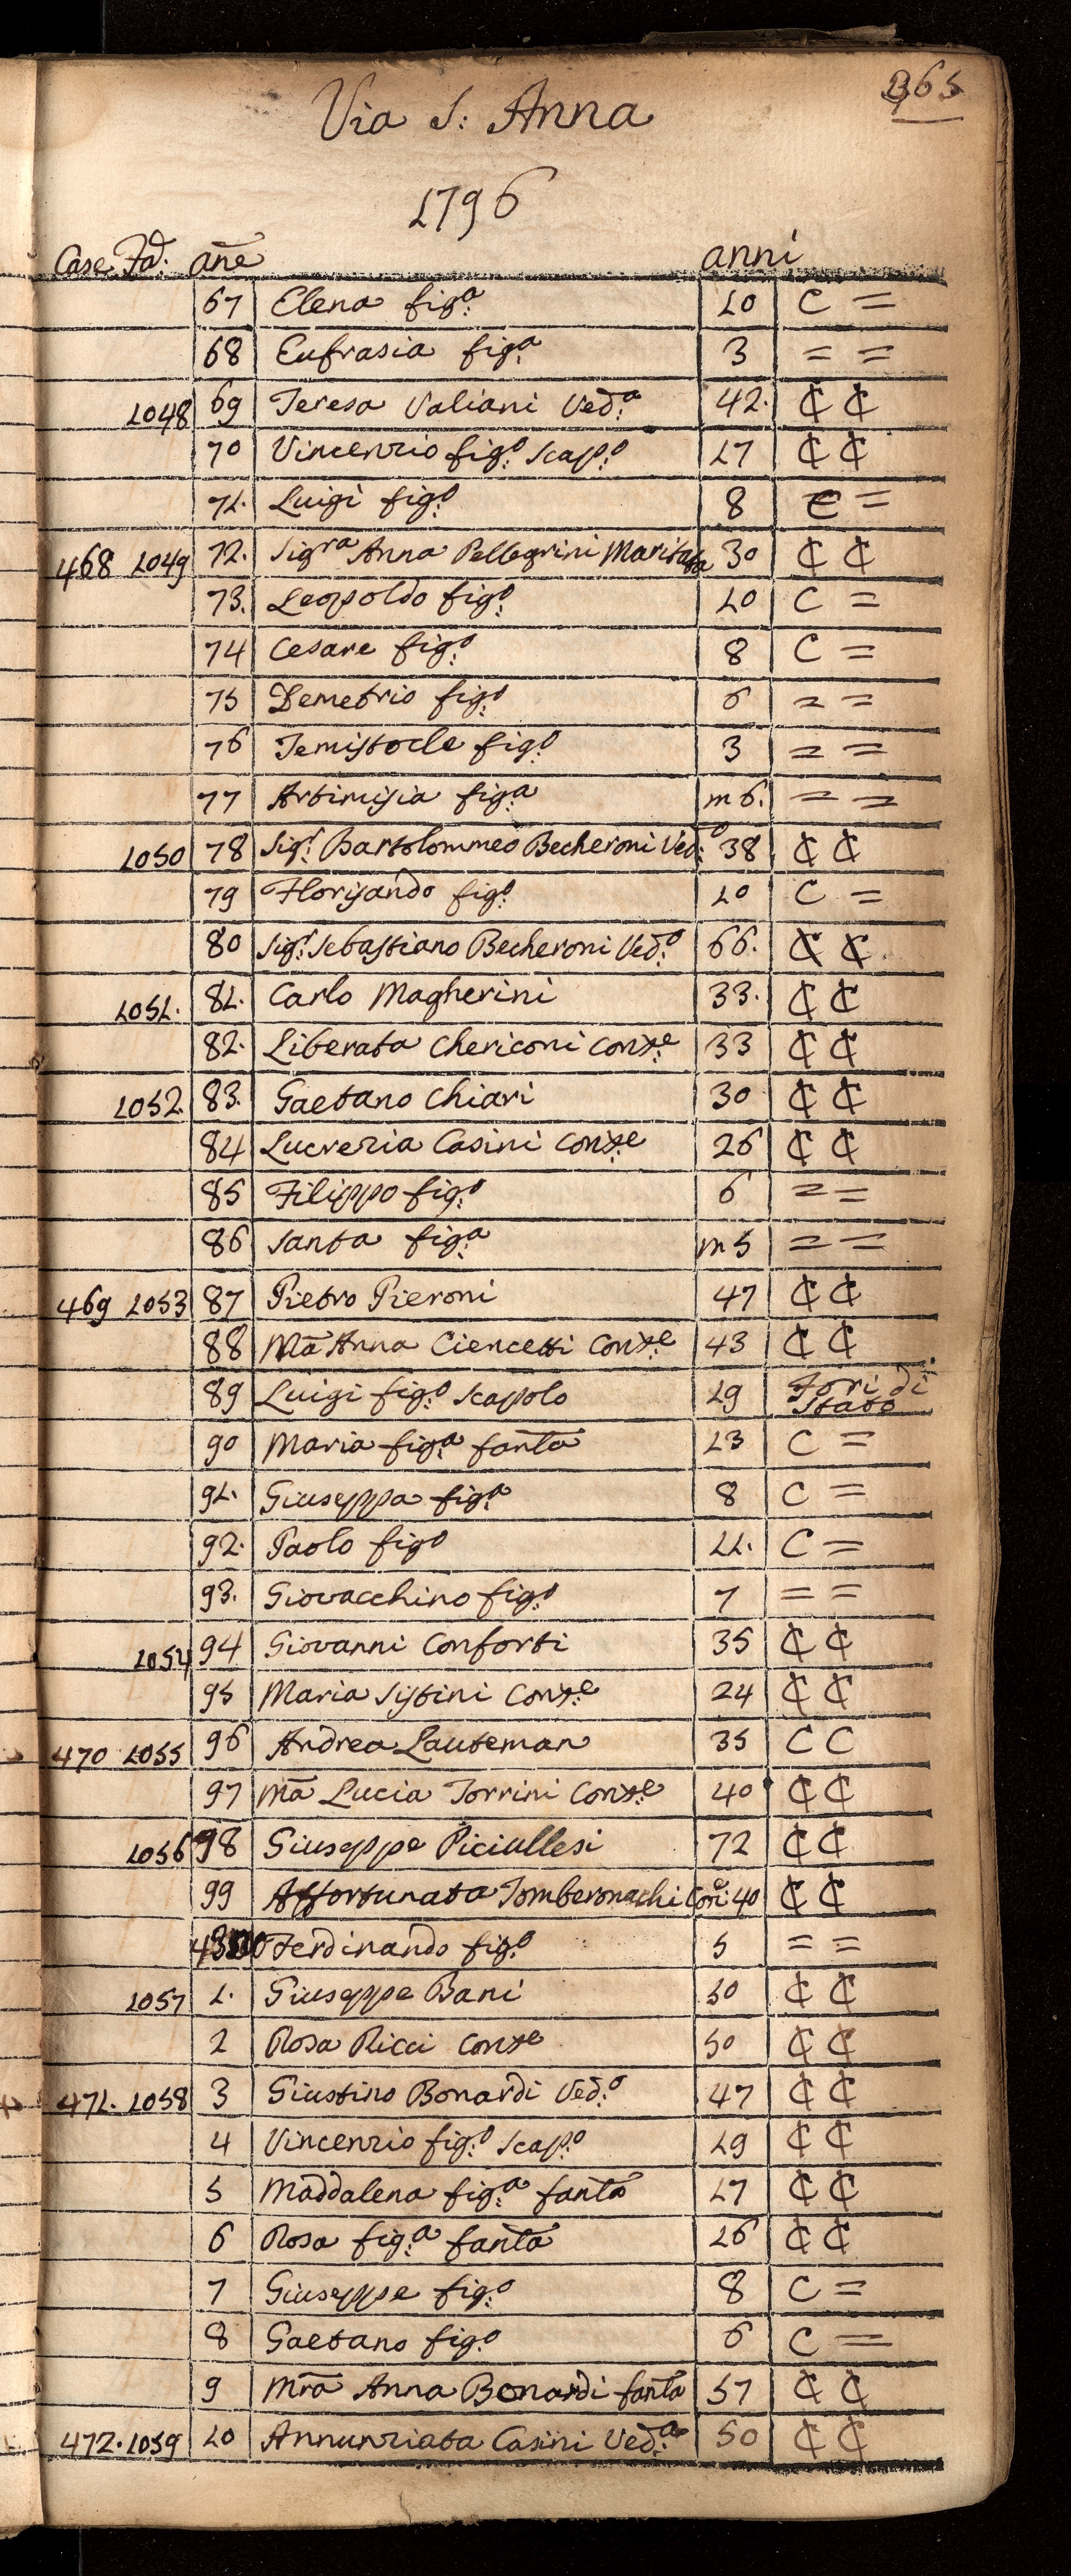 365
Via S: Anna
1796
Case Fã: añe anni
67 Elena fig:a 10 C =
68 Eufrasia fig:a 3 = =
1048 69 Teresa Valiani Ved:a 42. ₵ ₵
70 Vincenzio fig:o Scap:o 17 ₵ ₵
71. Luigi fig:o 8 C =
468 1049 72. Sig.ra Anna Pellegrini Maritata 30 ₵ ₵
73. Leopoldo fig:o 10 C =
74 Cesare fig:o 8 C =
75 Demetrio fig:o 6 = =
76 Temistocle fig:o 3 = =
77 Artimisia fig:a m 6. = =
1050 78 Sig:r Bartolommeo Becheroni Ved:o 38 ₵ ₵
79 Florisando fig:o 10 C =
80 Sig:r Sebastiano Becheroni Ved:o 66. ₵ ₵
1051. 81. Carlo Magherini 33. ₵ ₵
82. Liberata Chericoni Cons:e 33 ₵ ₵
1052. 83. Gaetano Chiari 30 ₵ ₵
84 Lucrezia Casini Cons:e 26 ₵ ₵
85 Filippo fig:o 6 = =
86 Santa fig:a m 5 = =
469 1053 87 Pietro Pieroni 47 ₵ ₵
88 Mã Anna Ciencetti Cons:e 43 ₵ ₵
89 Luigi fig:o Scapolo 19 Fori di Stato
90 Maria fig:a fanta 13 C =
91. Giuseppa fig:a 8 C =
92. Paolo figo 11. C =
93. Giovacchino fig:o 7 = =
1054 94 Giovanni Conforti 35 ₵ ₵
95 Maria Sistini Cons:e 24 ₵ ₵
470 1055 96 Andrea Lauteman 35 C C
97 Mã Lucia Torrini Cons:e 40 ₵ ₵
1056 98 Giuseppe Piciullesi 72 ₵ ₵
99 Affortunata Tomberonachi Con:e 40 ₵ ₵
4300 Ferdinando fig:o 5 = =
1057 1. Giuseppe Bani 50 ₵ ₵
2 Rosa Ricci Conse 50 ₵ ₵
471. 1058 3 Giustino Bonardi Ved:o 47 ₵ ₵
4 Vincenzio fig:o Scap:o 19 ₵ ₵
5 Maddalena fig:a fanta 17 ₵ ₵
6 Rosa fig:a fanta 16 ₵ ₵
7 Giuseppe fig:o 8 C =
8 Gaetano fig:o 6 C =
9 Mrã Anna Bonardi fanta 57 ₵ ₵
472. 1059 10 Annunziata Casini Ved:a 50 ₵ ₵